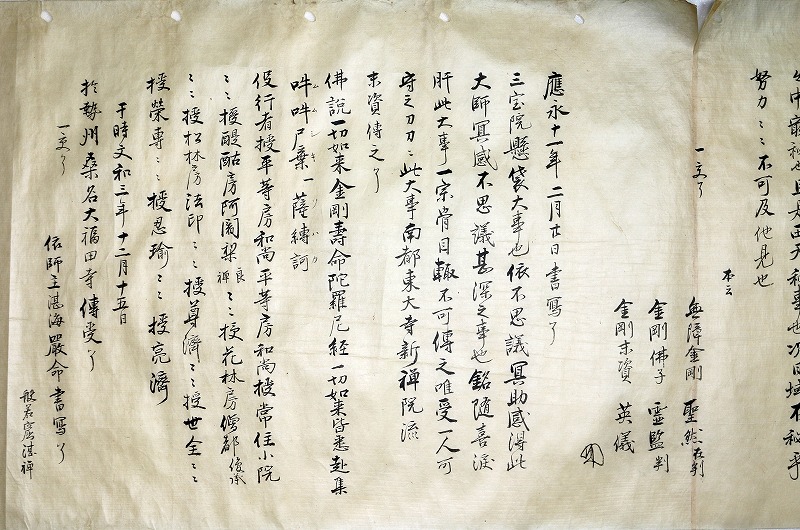 努力〻〻不可及他見也
一交了
本云
無障金剛 聖然在判
金剛佛子 霊監判
金剛末資 英儀
應永十一年二月廿日書写了
三宝院懸袋大事也依不思議冥助感得此
大師冥感不思議甚深之事也銘随喜涙
肝此大事一宗骨目輙不可傳之唯受一人可
守之〻〻此大事南都東大寺新禅院流
末資傳之了
佛説一切如来金剛壽命陀羅尼経一切如来皆悉赴集
吽吽尸棄一薩縛訶
役行者授平等房和尚平等房和尚授常住小院
〻〻授醍醐房阿闍梨良禅〻〻授花林房僧都俊承
〻〻授松林房法印〻〻授尊済〻〻授世全〻〻
授榮専〻〻授忍瑜〻〻授亮済
于時文和三年十二月十五日
於勢州桑名大福田寺傳受了
一交了
依師主湛海嚴命書写了
般若窟湛禅